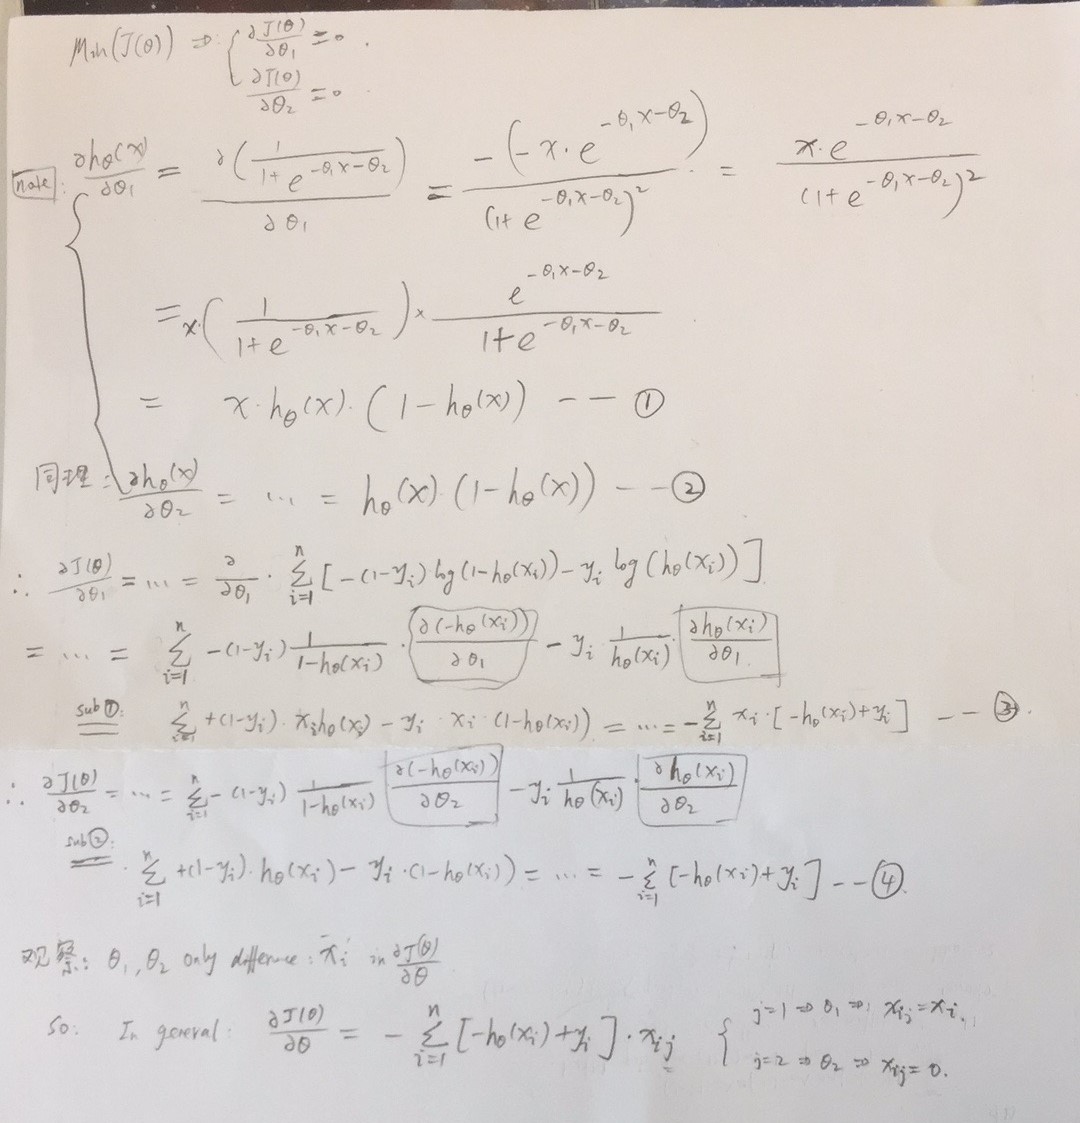 Min(J(θ)) ⇒ { ∂J(θ)/∂θ₁ = 0 .
∂J(θ)/∂θ₂ = 0 .
note: ∂hθ(x)/∂θ₁ = ∂(1/(1+e^(-θ₁x-θ₂)))/∂θ₁ = -(-x·e^(-θ₁x-θ₂))/(1+e^(-θ₁x-θ₂))² = x·e^(-θ₁x-θ₂)/(1+e^(-θ₁x-θ₂))²
= x·(1/(1+e^(-θ₁x-θ₂))) × e^(-θ₁x-θ₂)/(1+e^(-θ₁x-θ₂))
= x·hθ(x)·(1-hθ(x)) -- ①
同理: ∂hθ(x)/∂θ₂ = ... = hθ(x)·(1-hθ(x)) -- ②
∴ ∂J(θ)/∂θ₁ = ... = ∂/∂θ₁ · Σ_{i=1}^{n} [-(1-yᵢ)·log(1-hθ(xᵢ)) - yᵢ log(hθ(xᵢ))]
= ... = Σ_{i=1}^{n} -(1-yᵢ) 1/(1-hθ(xᵢ)) · ∂(-hθ(xᵢ))/∂θ₁ - yᵢ 1/hθ(xᵢ) · ∂hθ(xᵢ)/∂θ₁
sub①: = Σ_{i=1}^{n} +(1-yᵢ)·xᵢhθ(xᵢ) - yᵢ·xᵢ·(1-hθ(xᵢ)) = ... = -Σ_{i=1}^{n} xᵢ·[-hθ(xᵢ)+yᵢ] -- ③.
∴ ∂J(θ)/∂θ₂ = ... = Σ_{i=1}^{n} -(1-yᵢ) 1/(1-hθ(xᵢ)) ∂(-hθ(xᵢ))/∂θ₂ - yᵢ 1/hθ(xᵢ) · ∂hθ(xᵢ)/∂θ₂
sub②: = Σ_{i=1}^{n} +(1-yᵢ)·hθ(xᵢ) - yᵢ·(1-hθ(xᵢ)) = ... = -Σ_{i=1}^{n} [-hθ(xᵢ)+yᵢ] -- ④.
观察: θ₁, θ₂ only difference: xᵢ in ∂J(θ)/∂θ
So: In general: ∂J(θ)/∂θ = -Σ_{i=1}^{n} [-hθ(xᵢ)+yᵢ]·xᵢⱼ { j=1 ⇒ θ₁ ⇒ xᵢⱼ=xᵢ.
j=2 ⇒ θ₂ ⇒ xᵢⱼ=0.